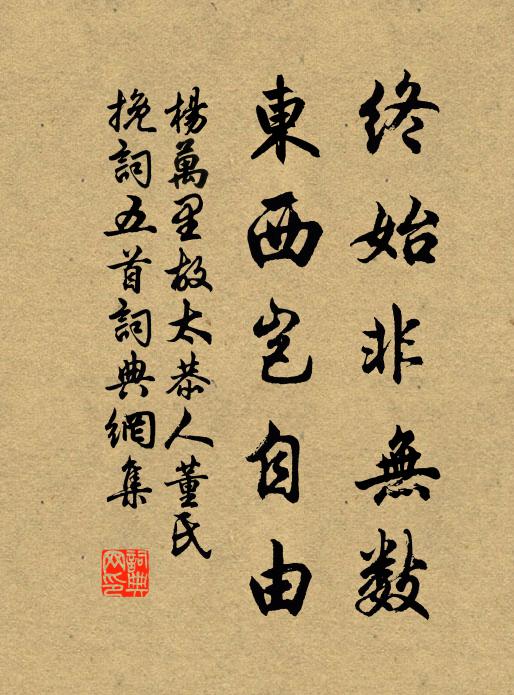 終始非無數
東西豈自由
楊萬里故太恭人董氏
挽詞五首詞典網集
詞典
网印